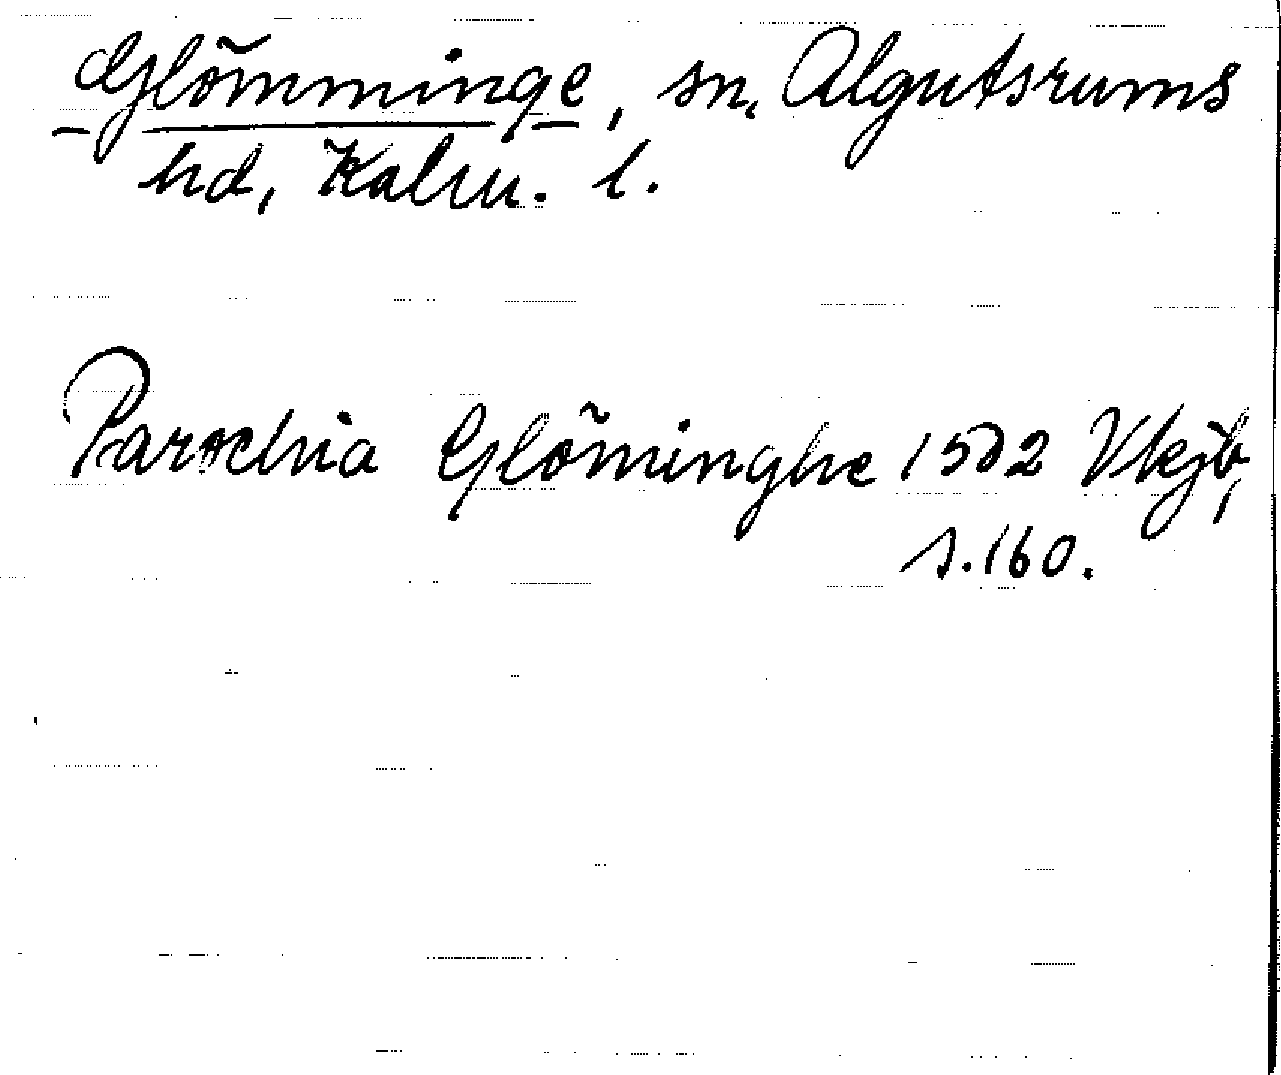 Glömminge, sn, Algutsrums
hd, Kalm. l.
Parochia Glöminghe 1502 Vkjb,
s. 160.